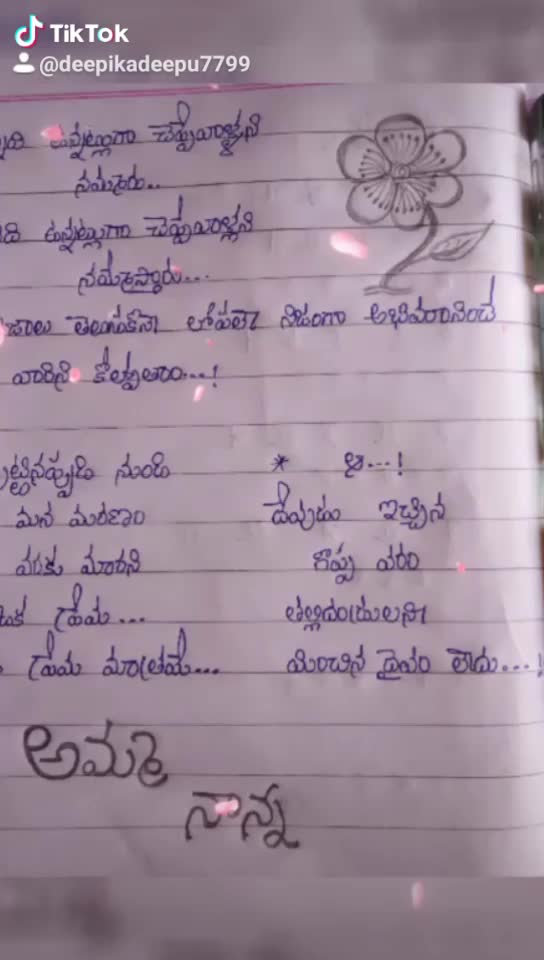 TikTok
@deepikadeepu7799
ఉన్నట్లుగా చెప్పేవాళ్ళని
నమ్మరు..
ఉన్నట్లుగా చెప్పేవాళ్లని
నమ్మేస్తారు...
తెలుసుకొనే లోపలో నిజంగా అభిమానించే
వారిని కోల్పుతారు...!
నుండి
మన మరణం
వరకు మారని
ప్రేమ...
ప్రేమ మాత్రమే...
* ఆ...!
దేవుడు ఇచ్చిన
గొప్ప వరం
తల్లిదండ్రులని
మించిన దైవం లేదు...!
అమ్మ
నాన్న